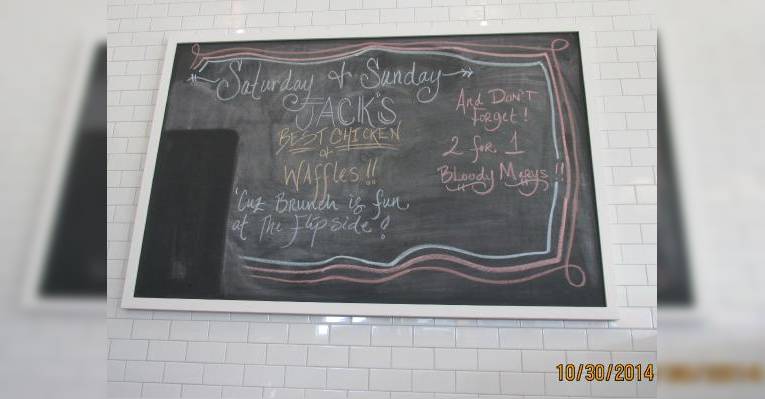 Saturday & Sunday
JACK'S
BEST CHICKEN
&
WAffles!!
'Cuz Brunch is fun,
at The Flipside!
And DON'T
forget!
2 for 1
Bloody Marys!!
10/30/2014